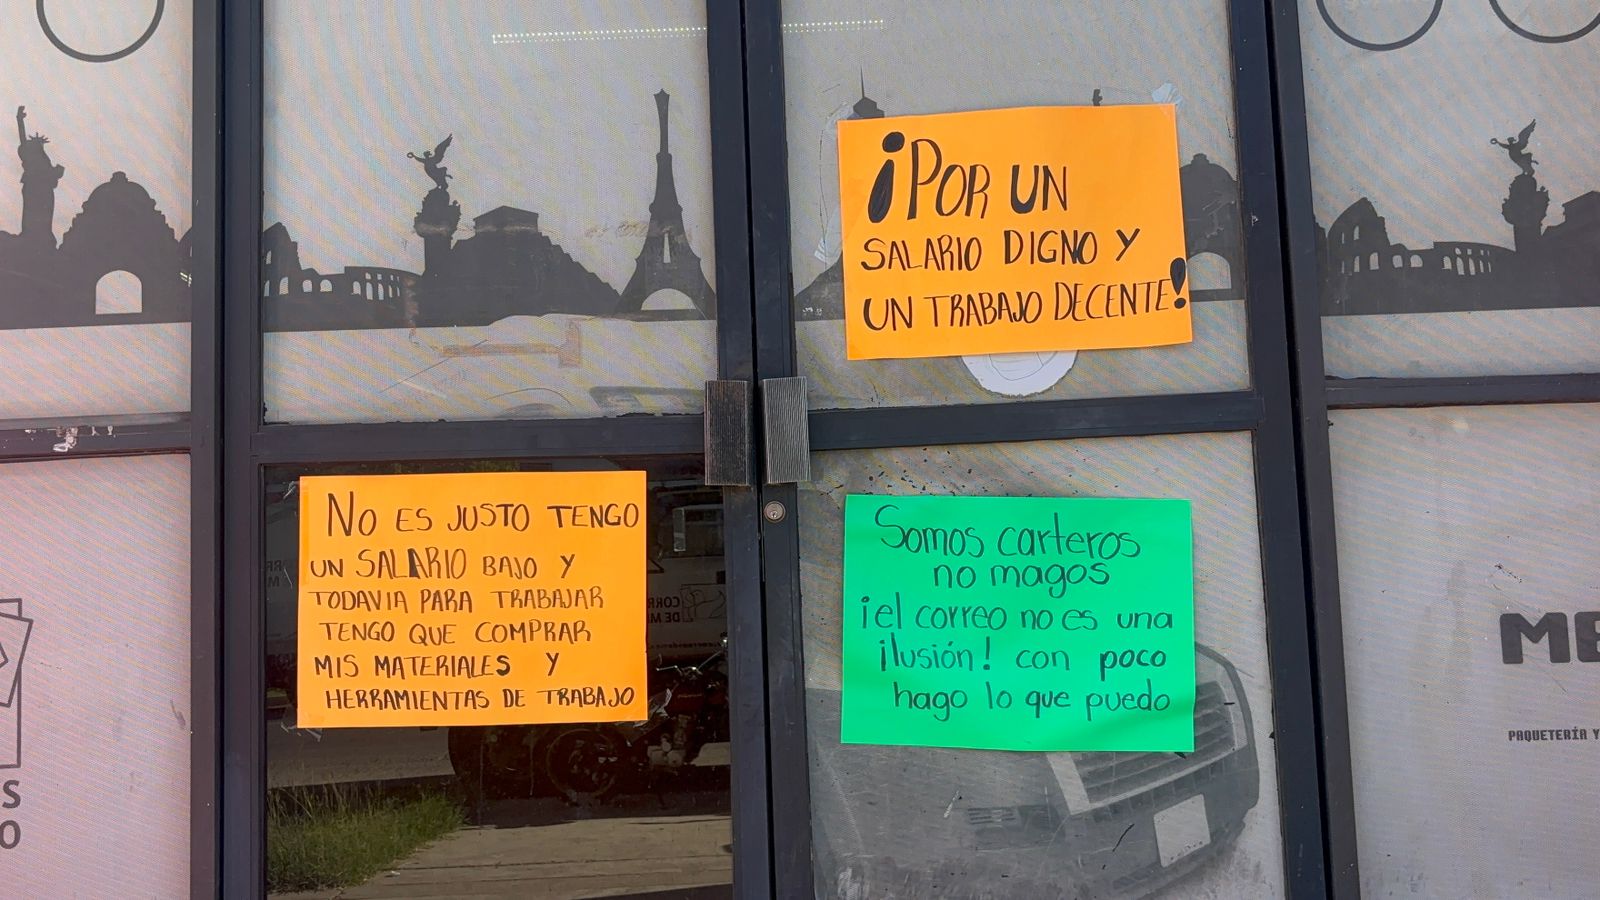 ¡POR UN
SALARIO DIGNO Y
UN TRABAJO DECENTE!
NO ES JUSTO TENGO
UN SALARIO BAJO Y
TODAVIA PARA TRABAJAR
TENGO QUE COMPRAR
MIS MATERIALES Y
HERRAMIENTAS DE TRABAJO
Somos carteros
no magos
¡el correo no es una
ilusión! con poco
hago lo que puedo
PAQUETERÍA Y